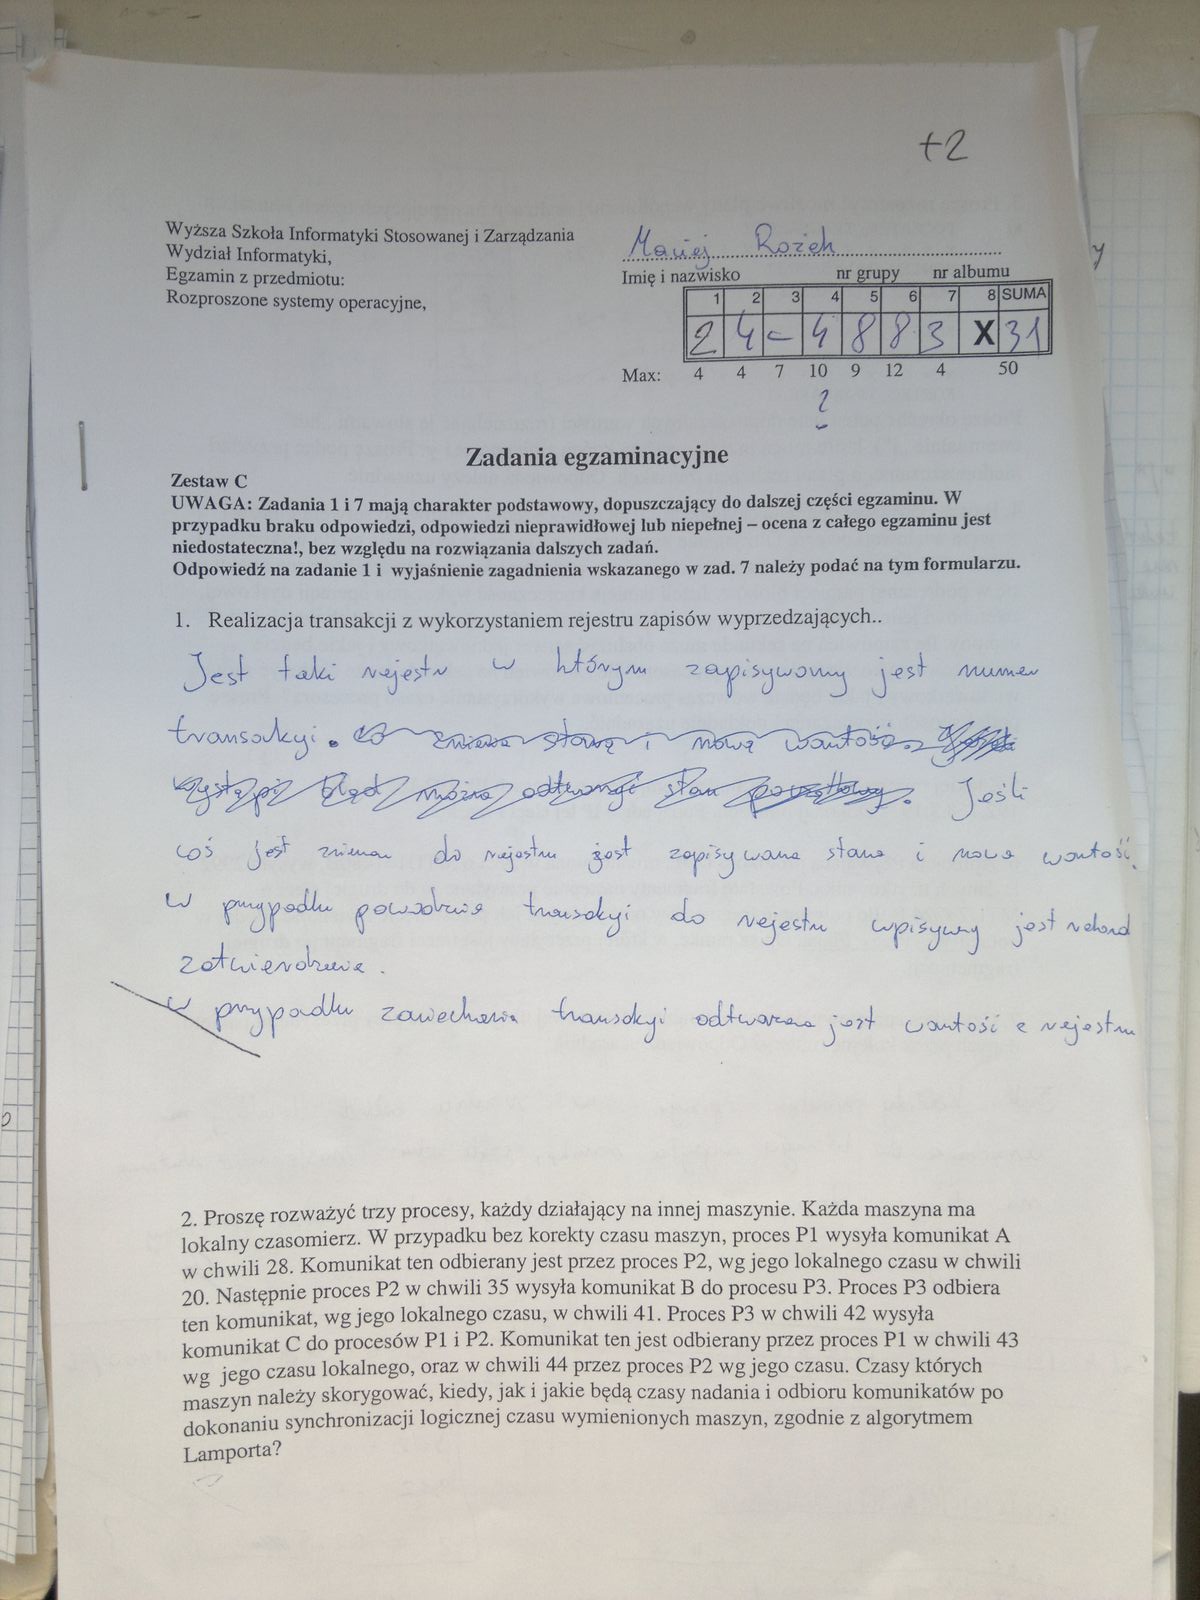 +2
Wyższa Szkoła Informatyki Stosowanej i Zarządzania
Wydział Informatyki,
Egzamin z przedmiotu:
Rozproszone systemy operacyjne,
Maciej Rożek
Imię i nazwisko nr grupy nr albumu
1 2 3 4 5 6 7 8 SUMA
2 4 - 4 8 8 3 X 31
Max: 4 4 7 10 9 12 4 50
?
Zadania egzaminacyjne
Zestaw C
UWAGA: Zadania 1 i 7 mają charakter podstawowy, dopuszczający do dalszej części egzaminu. W
przypadku braku odpowiedzi, odpowiedzi nieprawidłowej lub niepełnej – ocena z całego egzaminu jest
niedostateczna!, bez względu na rozwiązania dalszych zadań.
Odpowiedź na zadanie 1 i wyjaśnienie zagadnienia wskazanego w zad. 7 należy podać na tym formularzu.
1. Realizacja transakcji z wykorzystaniem rejestru zapisów wyprzedzających..
Jest taki rejestr w którym zapisywany jest numer
transakcji. zmiena starą i nową wartość.
wystąpi błąd można odtworzyć stan początkowy. Jeśli
coś jest zmienan do rejestru jest zapisywana stara i nowa wartość.
W przypadku powodzenia transakcji do rejestru wpisywny jest rekord
zatwierdzenia.
W przypadku zaniechania transakcji odtwarzana jest wartość z rejestru
2. Proszę rozważyć trzy procesy, każdy działający na innej maszynie. Każda maszyna ma
lokalny czasomierz. W przypadku bez korekty czasu maszyn, proces P1 wysyła komunikat A
w chwili 28. Komunikat ten odbierany jest przez proces P2, wg jego lokalnego czasu w chwili
20. Następnie proces P2 w chwili 35 wysyła komunikat B do procesu P3. Proces P3 odbiera
ten komunikat, wg jego lokalnego czasu, w chwili 41. Proces P3 w chwili 42 wysyła
komunikat C do procesów P1 i P2. Komunikat ten jest odbierany przez proces P1 w chwili 43
wg jego czasu lokalnego, oraz w chwili 44 przez proces P2 wg jego czasu. Czasy których
maszyn należy skorygować, kiedy, jak i jakie będą czasy nadania i odbioru komunikatów po
dokonaniu synchronizacji logicznej czasu wymienionych maszyn, zgodnie z algorytmem
Lamporta?